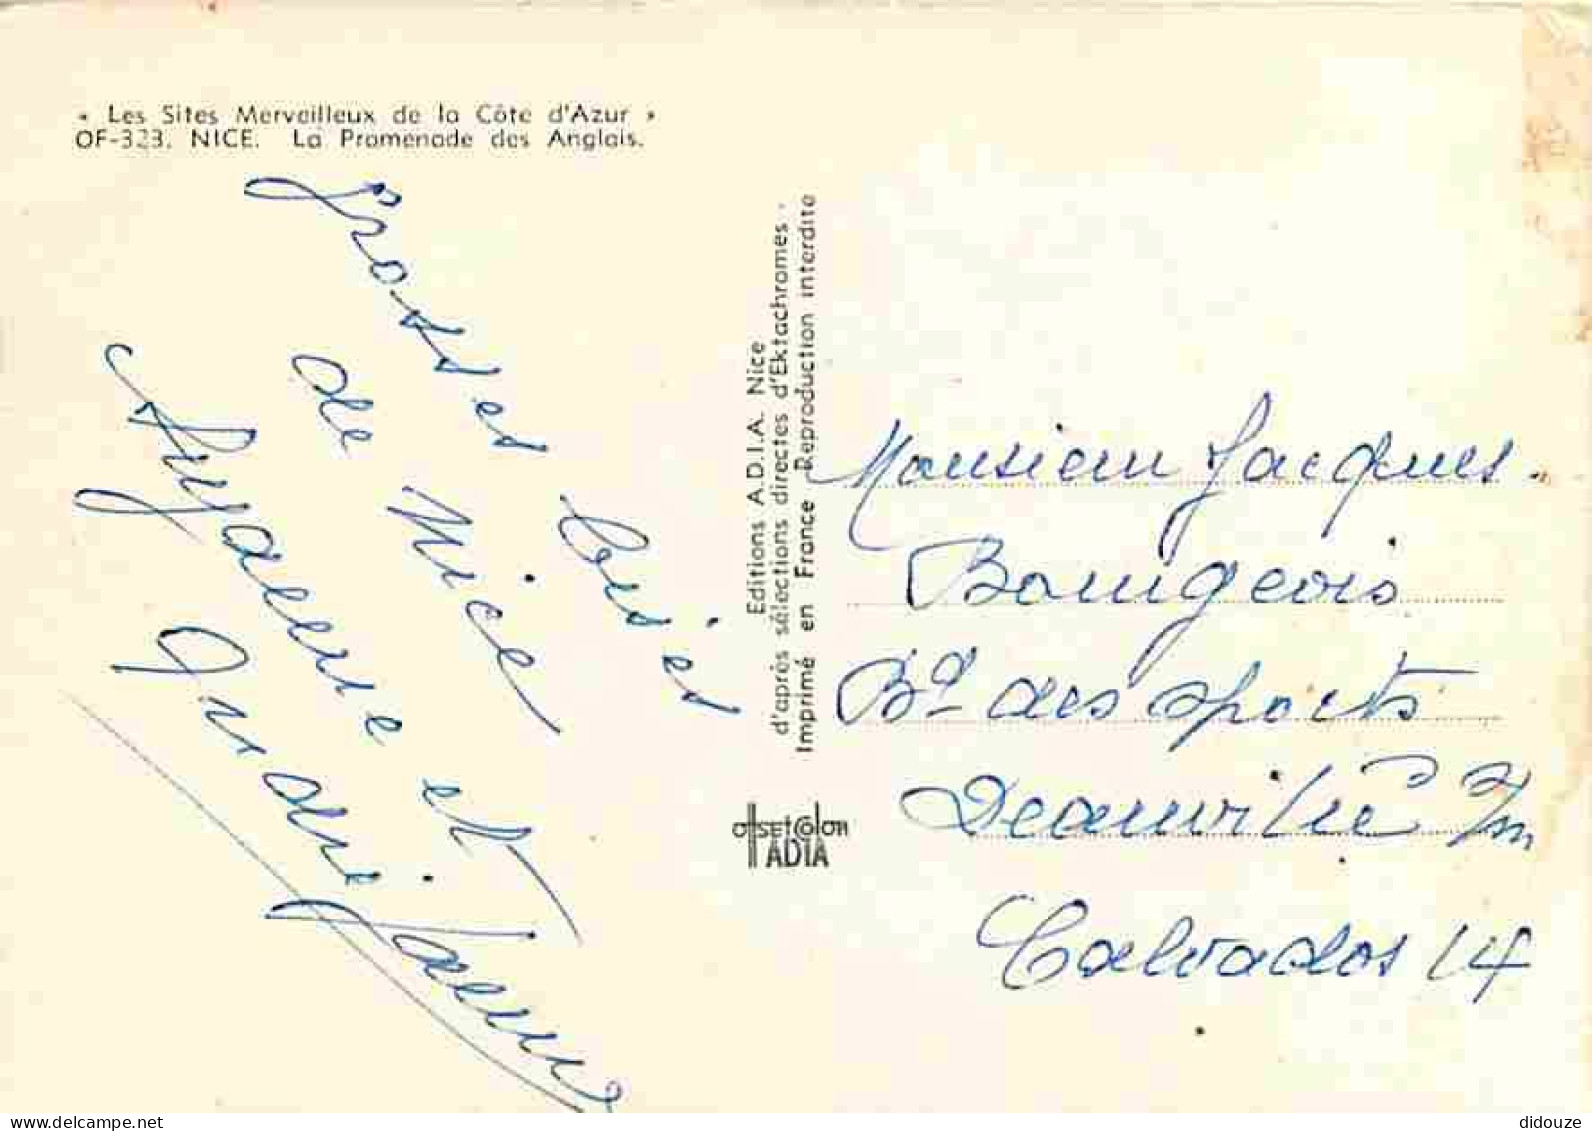 « Les Sites Merveilleux de la Côte d'Azur »
OF-323. NICE. La Promenade des Anglais.
Grosses bises
de Nice
et
Editions A.D.I.A. Nice
d'après sélections directes d'Ektachromes -
Imprimé en France Reproduction interdite
offset color
ADIA
Monsieur Jacques.
Bourgeois
Bd des sports
Deauville
Calvados 14
didouze